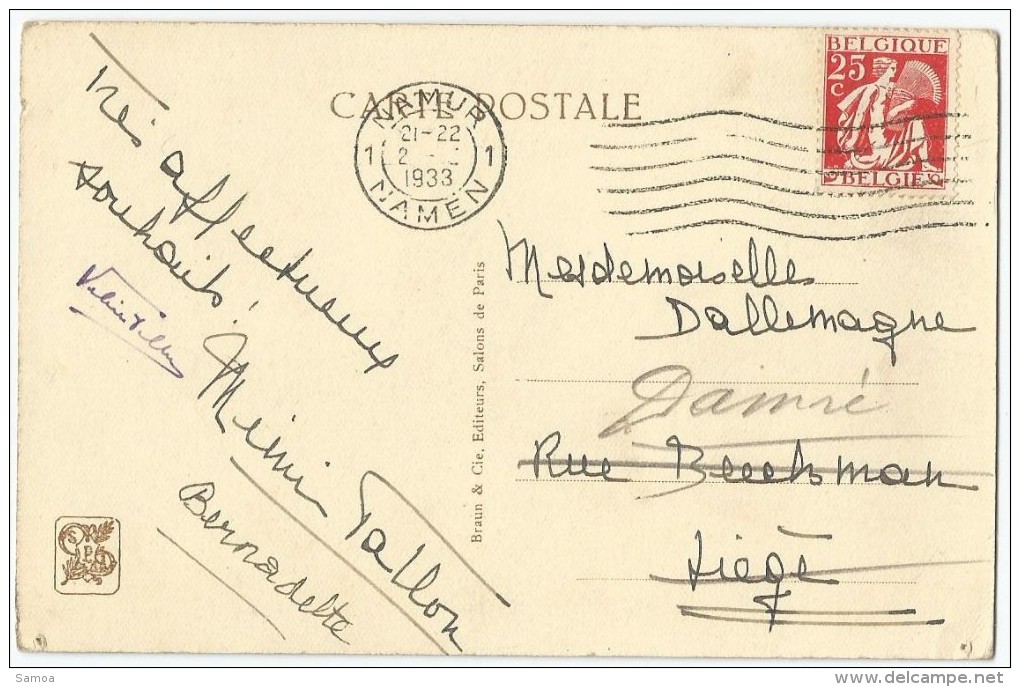 CARTE POSTALE
NAMUR
21-22
1 2 1
1933
NAMEN
BELGIQUE
25
C
BELGIE
Très affectueux
souhaits!
Mimi Tallon
Bernadette
Braun & Cie, Editeurs, Salons de Paris
Mesdemoiselles
Dallemagne
Damré
Rue Beeckman
Liège
Samoa
www.delcampe.net